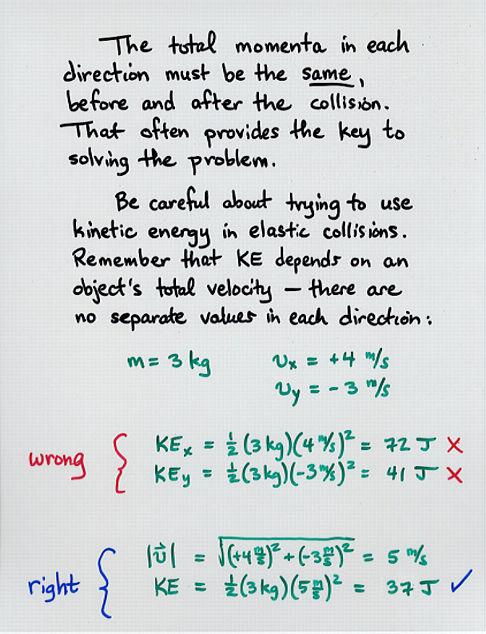 The total momenta in each
direction must be the same,
before and after the collision.
That often provides the key to
solving the problem.
Be careful about trying to use
kinetic energy in elastic collisions.
Remember that KE depends on an
object's total velocity – there are
no separate values in each direction:
m = 3 kg vx = +4 m/s
vy = -3 m/s
wrong { KEx = ½(3 kg)(4 m/s)² = 72 J ×
KEy = ½(3 kg)(-3 m/s)² = 41 J ×
right { |v⃗| = √((+4 m/s)² + (-3 m/s)²) = 5 m/s
KE = ½(3 kg)(5 m/s)² = 37 J ✓